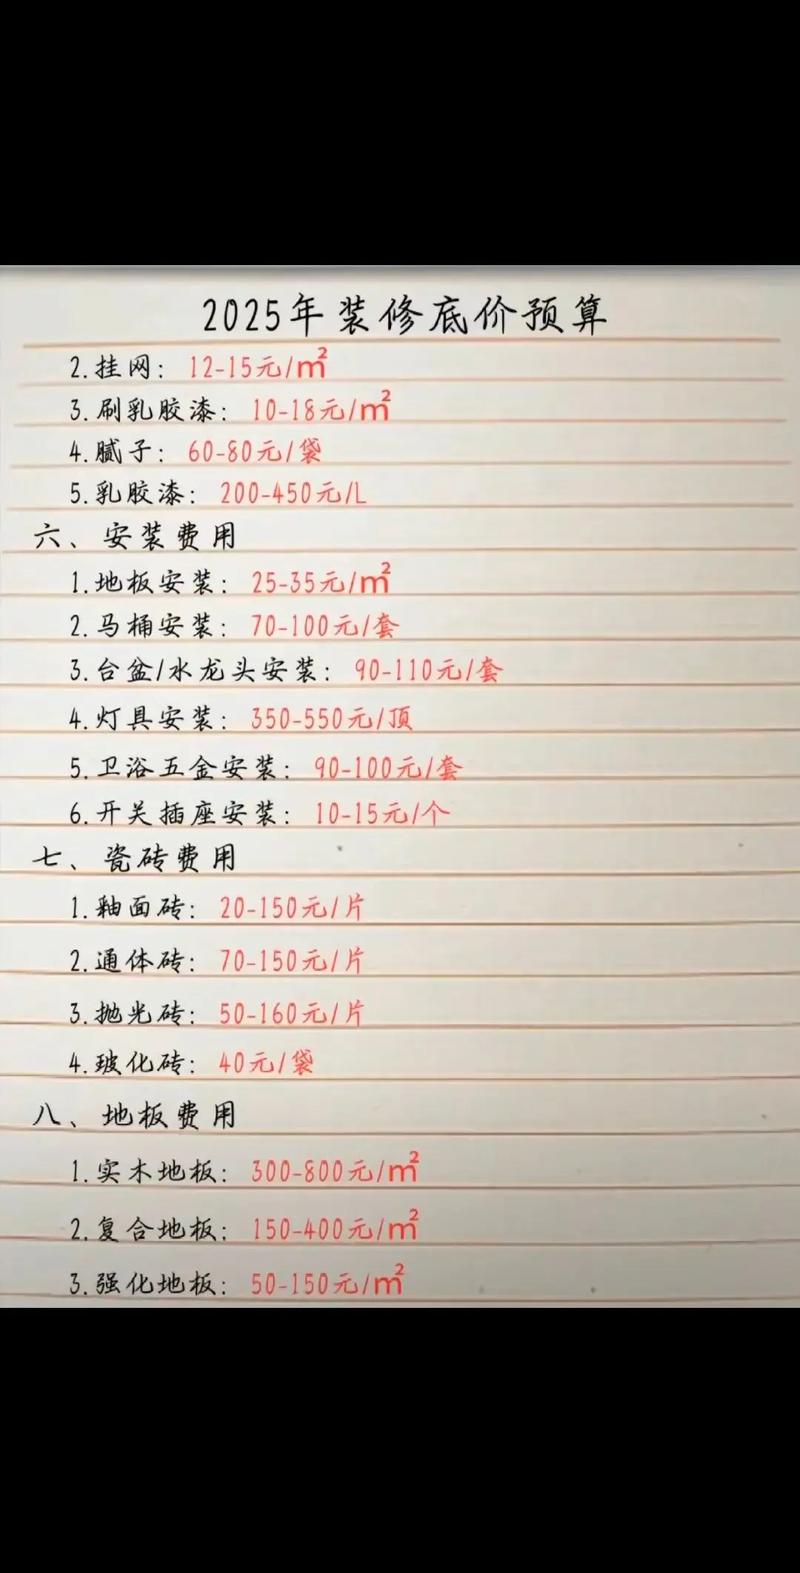 2025年装修底价预算
2.挂网：12-15元/㎡
3.刷乳胶漆：10-18元/㎡
4.腻子：60-80元/袋
5.乳胶漆：200-450元/L
六、安装费用
1.地板安装：25-35元/㎡
2.马桶安装：70-100元/套
3.台盆/水龙头安装：90-110元/套
4.灯具安装：350-550元/顶
5.卫浴五金安装：90-100元/套
6.开关插座安装：10-15元/个
七、瓷砖费用
1.釉面砖：20-150元/片
2.通体砖：70-150元/片
3.抛光砖：50-160元/片
4.玻化砖：40元/袋
八、地板费用
1.实木地板：300-800元/㎡
2.复合地板：150-400元/㎡
3.强化地板：50-150元/㎡